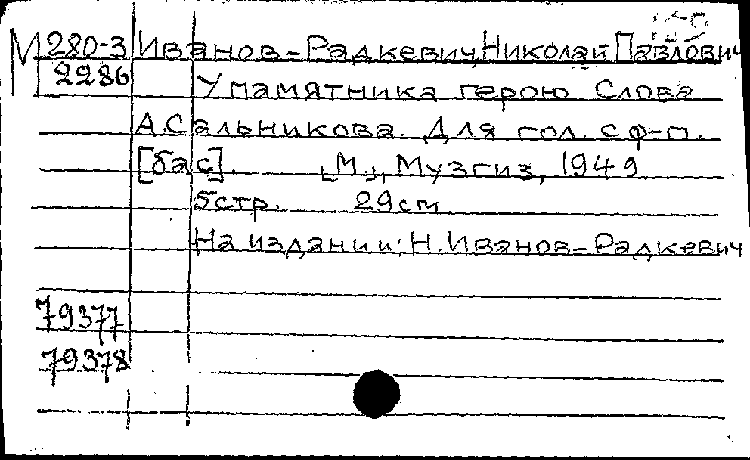 М 280-3 Иванов-Радкевич, Николай Павлович
2286 У памятника герою Слова
А. Сальникова. Для гол. с ф-п.
[бас]. [М.], Музгиз, 1949
5 стр. 29 см.
На издании: Н. Иванов-Радкевич
79377
79378